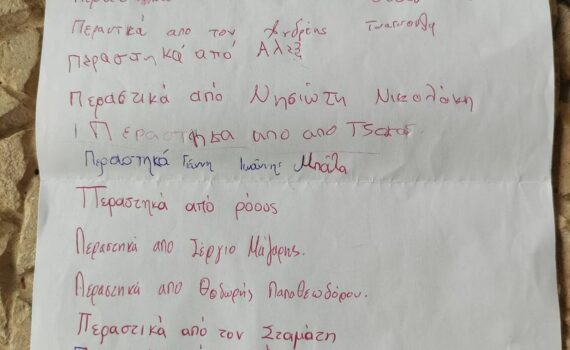 Περαστικά απο τον Ανδρέας
Περαστηκά από Αλεξ
Περαστικά από Νησιώτη Νικολάκη
Περαστηκα απο από
Περαστηκά Γιάννη Ιωάννης Μπάτα
Περαστηκά από ρόσος
Περαστηκά απο Σέργιο Μάζαρης.
Περαστηκά απο Θοδωρής Παπαθεωδόρου.
Περαστικά από τον Σταμάτη